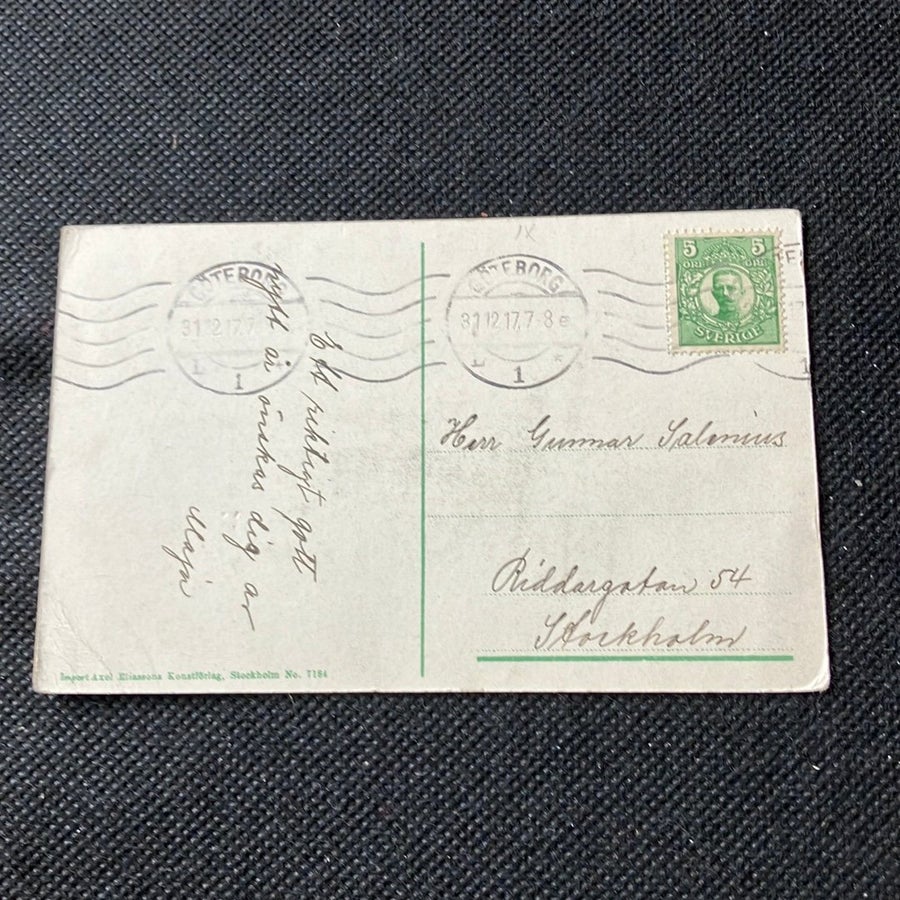 GÖTEBORG
31 12 17. 7
L 1
GÖTEBORG
31 12 17. 7-8 e
L *
1
5 5
ÖRE ÖRE
SVERIGE
1
IX
Ett riktigt gott
nytt år önskas dig av
Maja
Herr Gunnar Salenius
Riddargatan 54
Stockholm
Import Axel Eliassons Konstförlag, Stockholm No. 7184